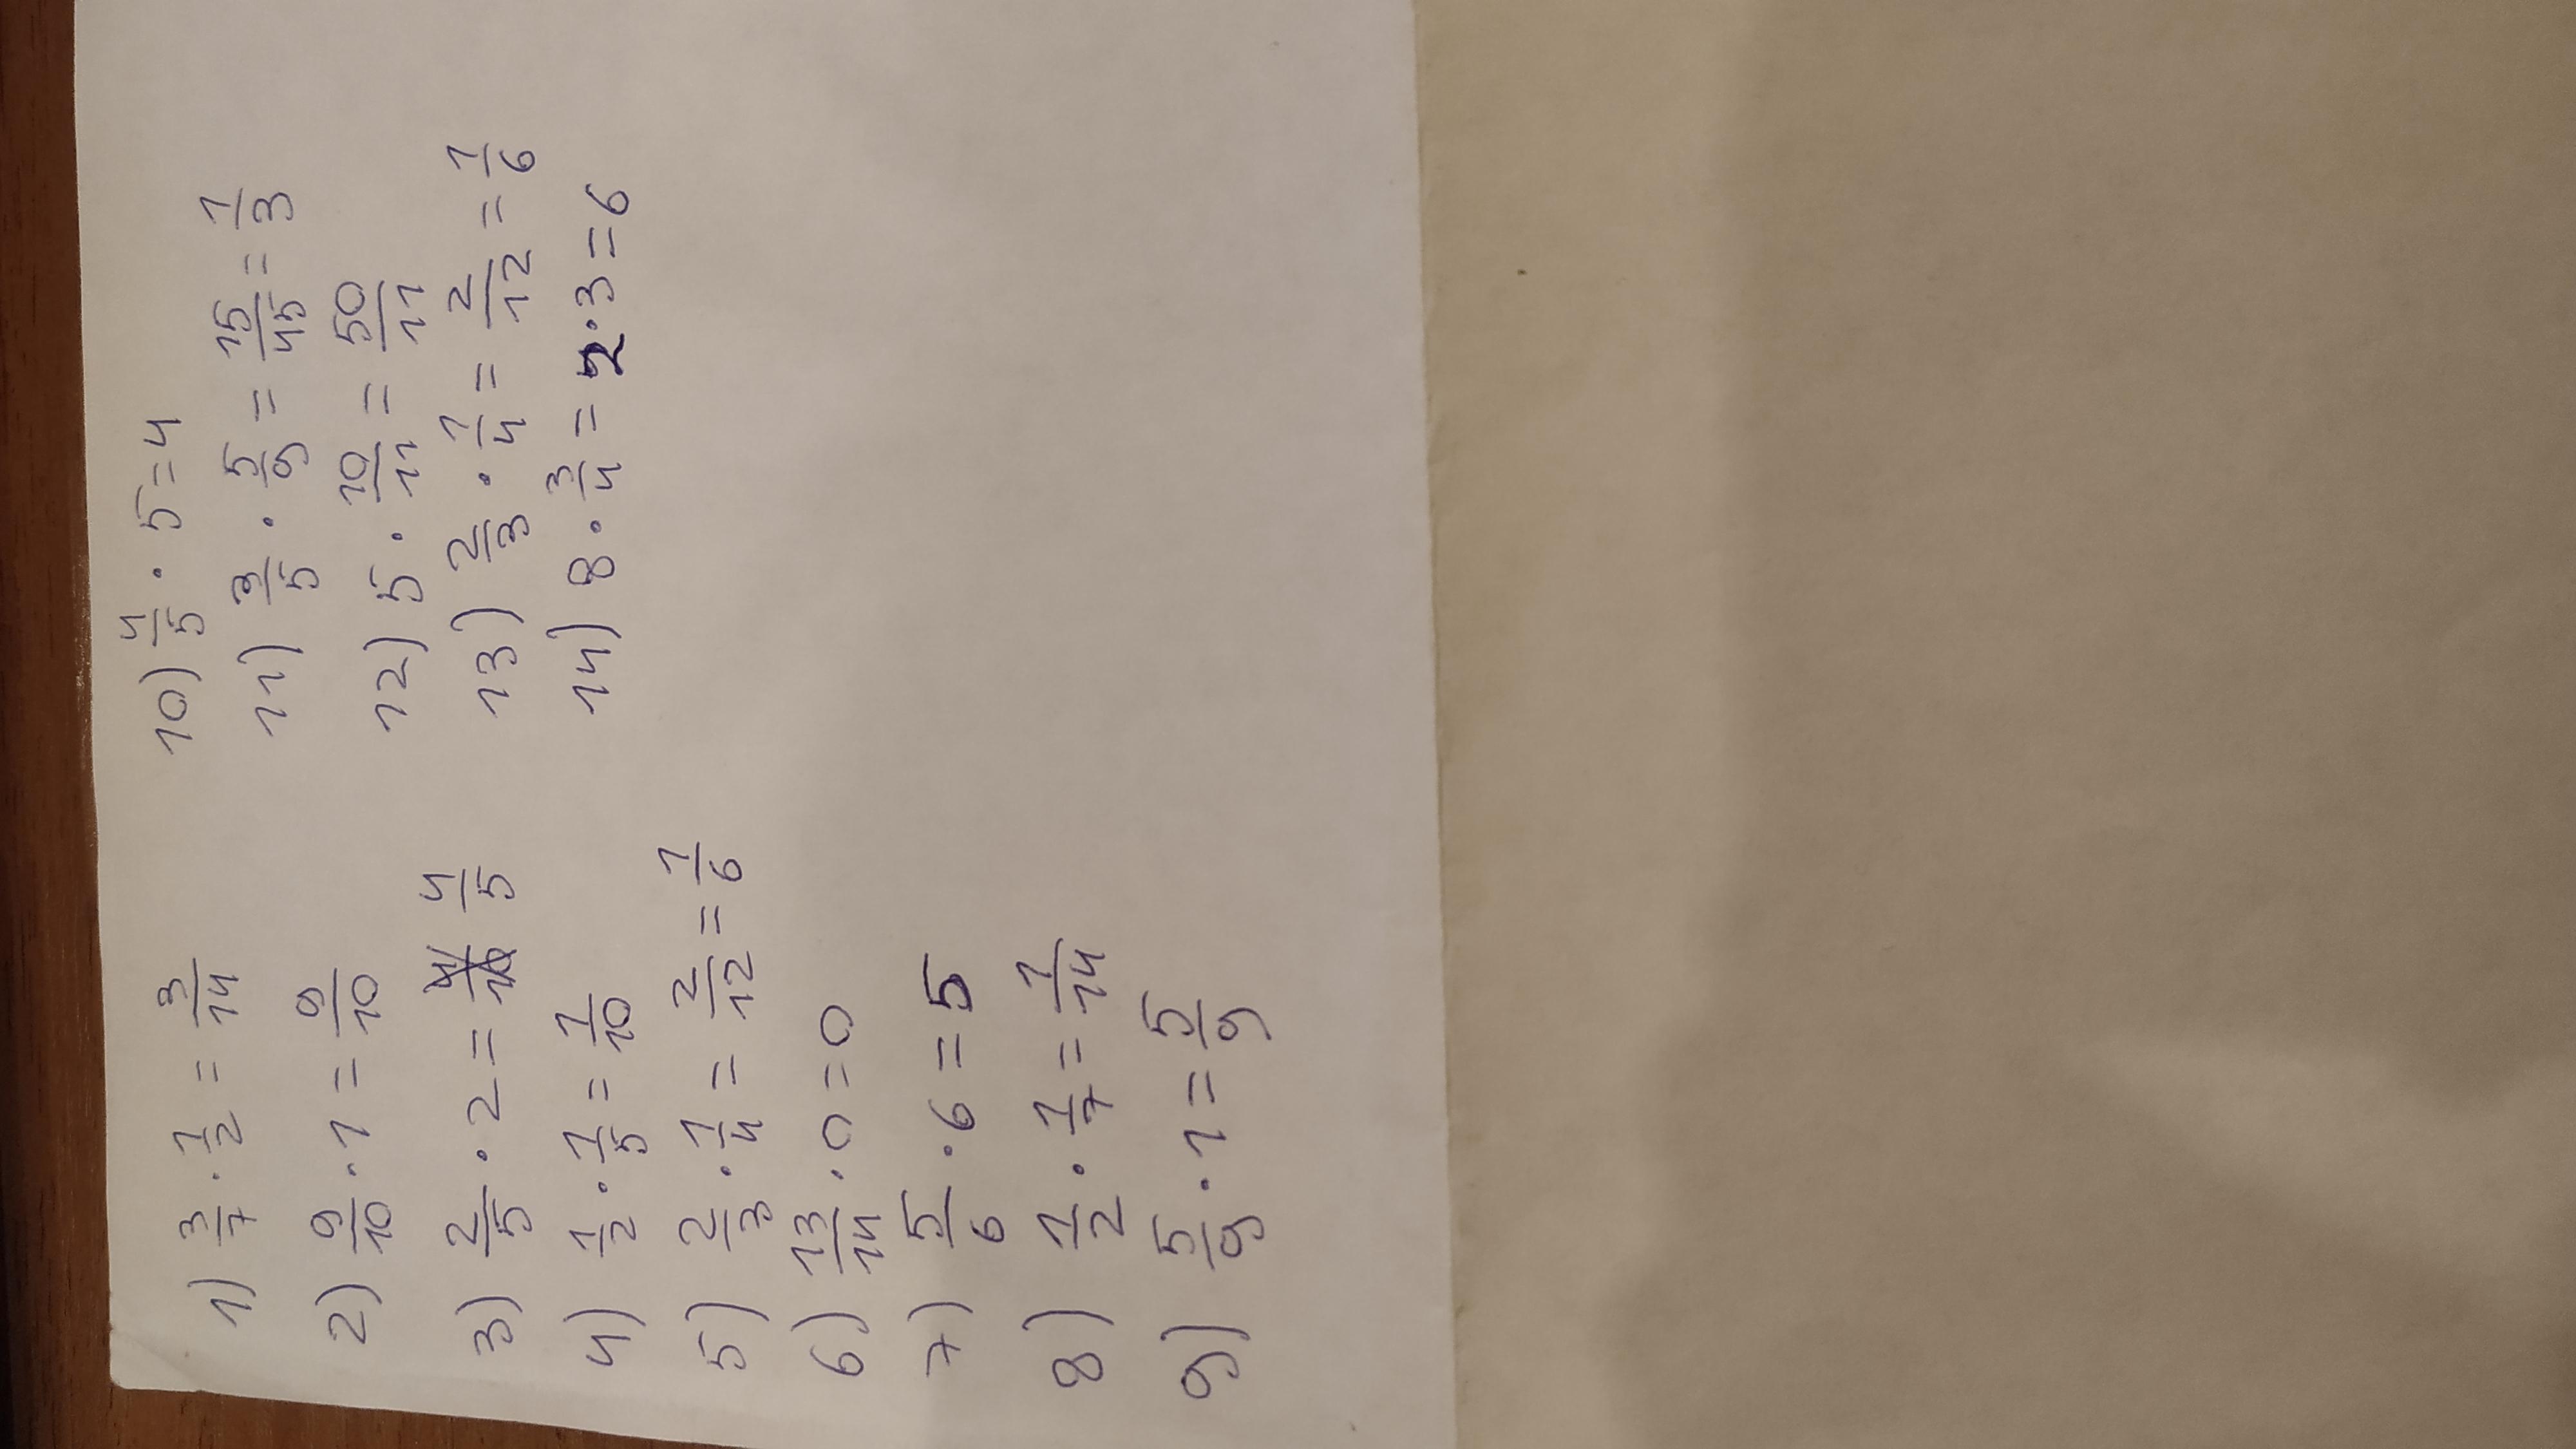 1) 3/7 · 1/2 = 3/14
2) 9/10 · 1 = 9/10
3) 2/5 · 2 = 4/10 4/5
4) 1/2 · 1/5 = 1/10
5) 2/3 · 1/4 = 2/12 = 1/6
6) 13/14 · 0 = 0
7) 5/6 · 6 = 5
8) 1/2 · 1/7 = 1/14
9) 5/9 · 1 = 5/9
10) 4/5 · 5 = 4
11) 3/5 · 5/9 = 15/45 = 1/3
12) 5 · 10/11 = 50/11
13) 2/3 · 1/4 = 2/12 = 1/6
14) 8 · 3/4 = 2 · 3 = 6